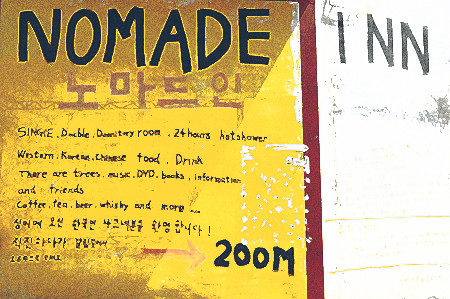 NOMADE INN
노마드인
SINGLE, Double, Dormitory room, 24hours hotshower
Western, Korean, Chinese food, Drink
There are trees, music, DVD, books, information
and friends
Coffee, tea, beer, whisky and more ...
오신 한국인 나그네분들 환영합니다!
직진하다가
200M